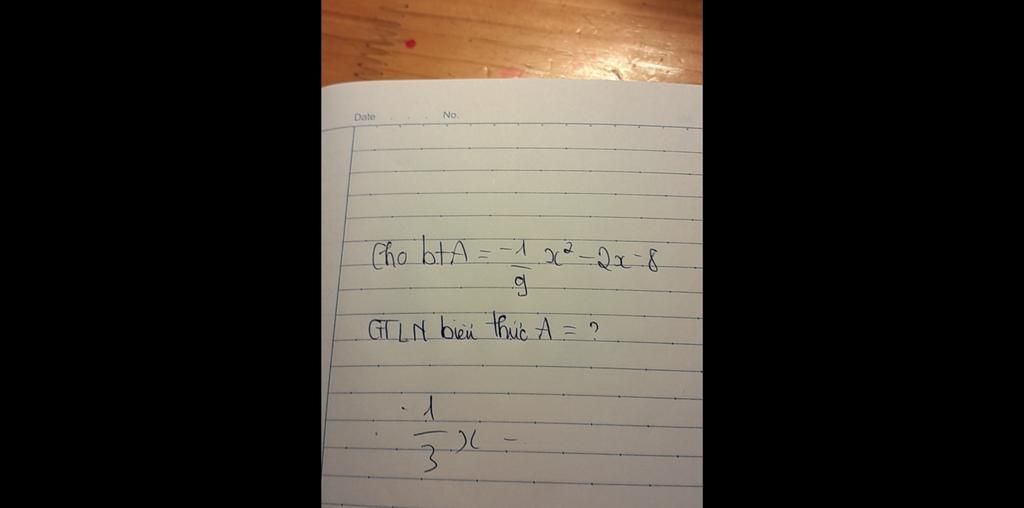 Date . . . No.
Cho bt A = -1/9 x² - 2x - 8
GTLN biểu thức A = ?
1/3 x -